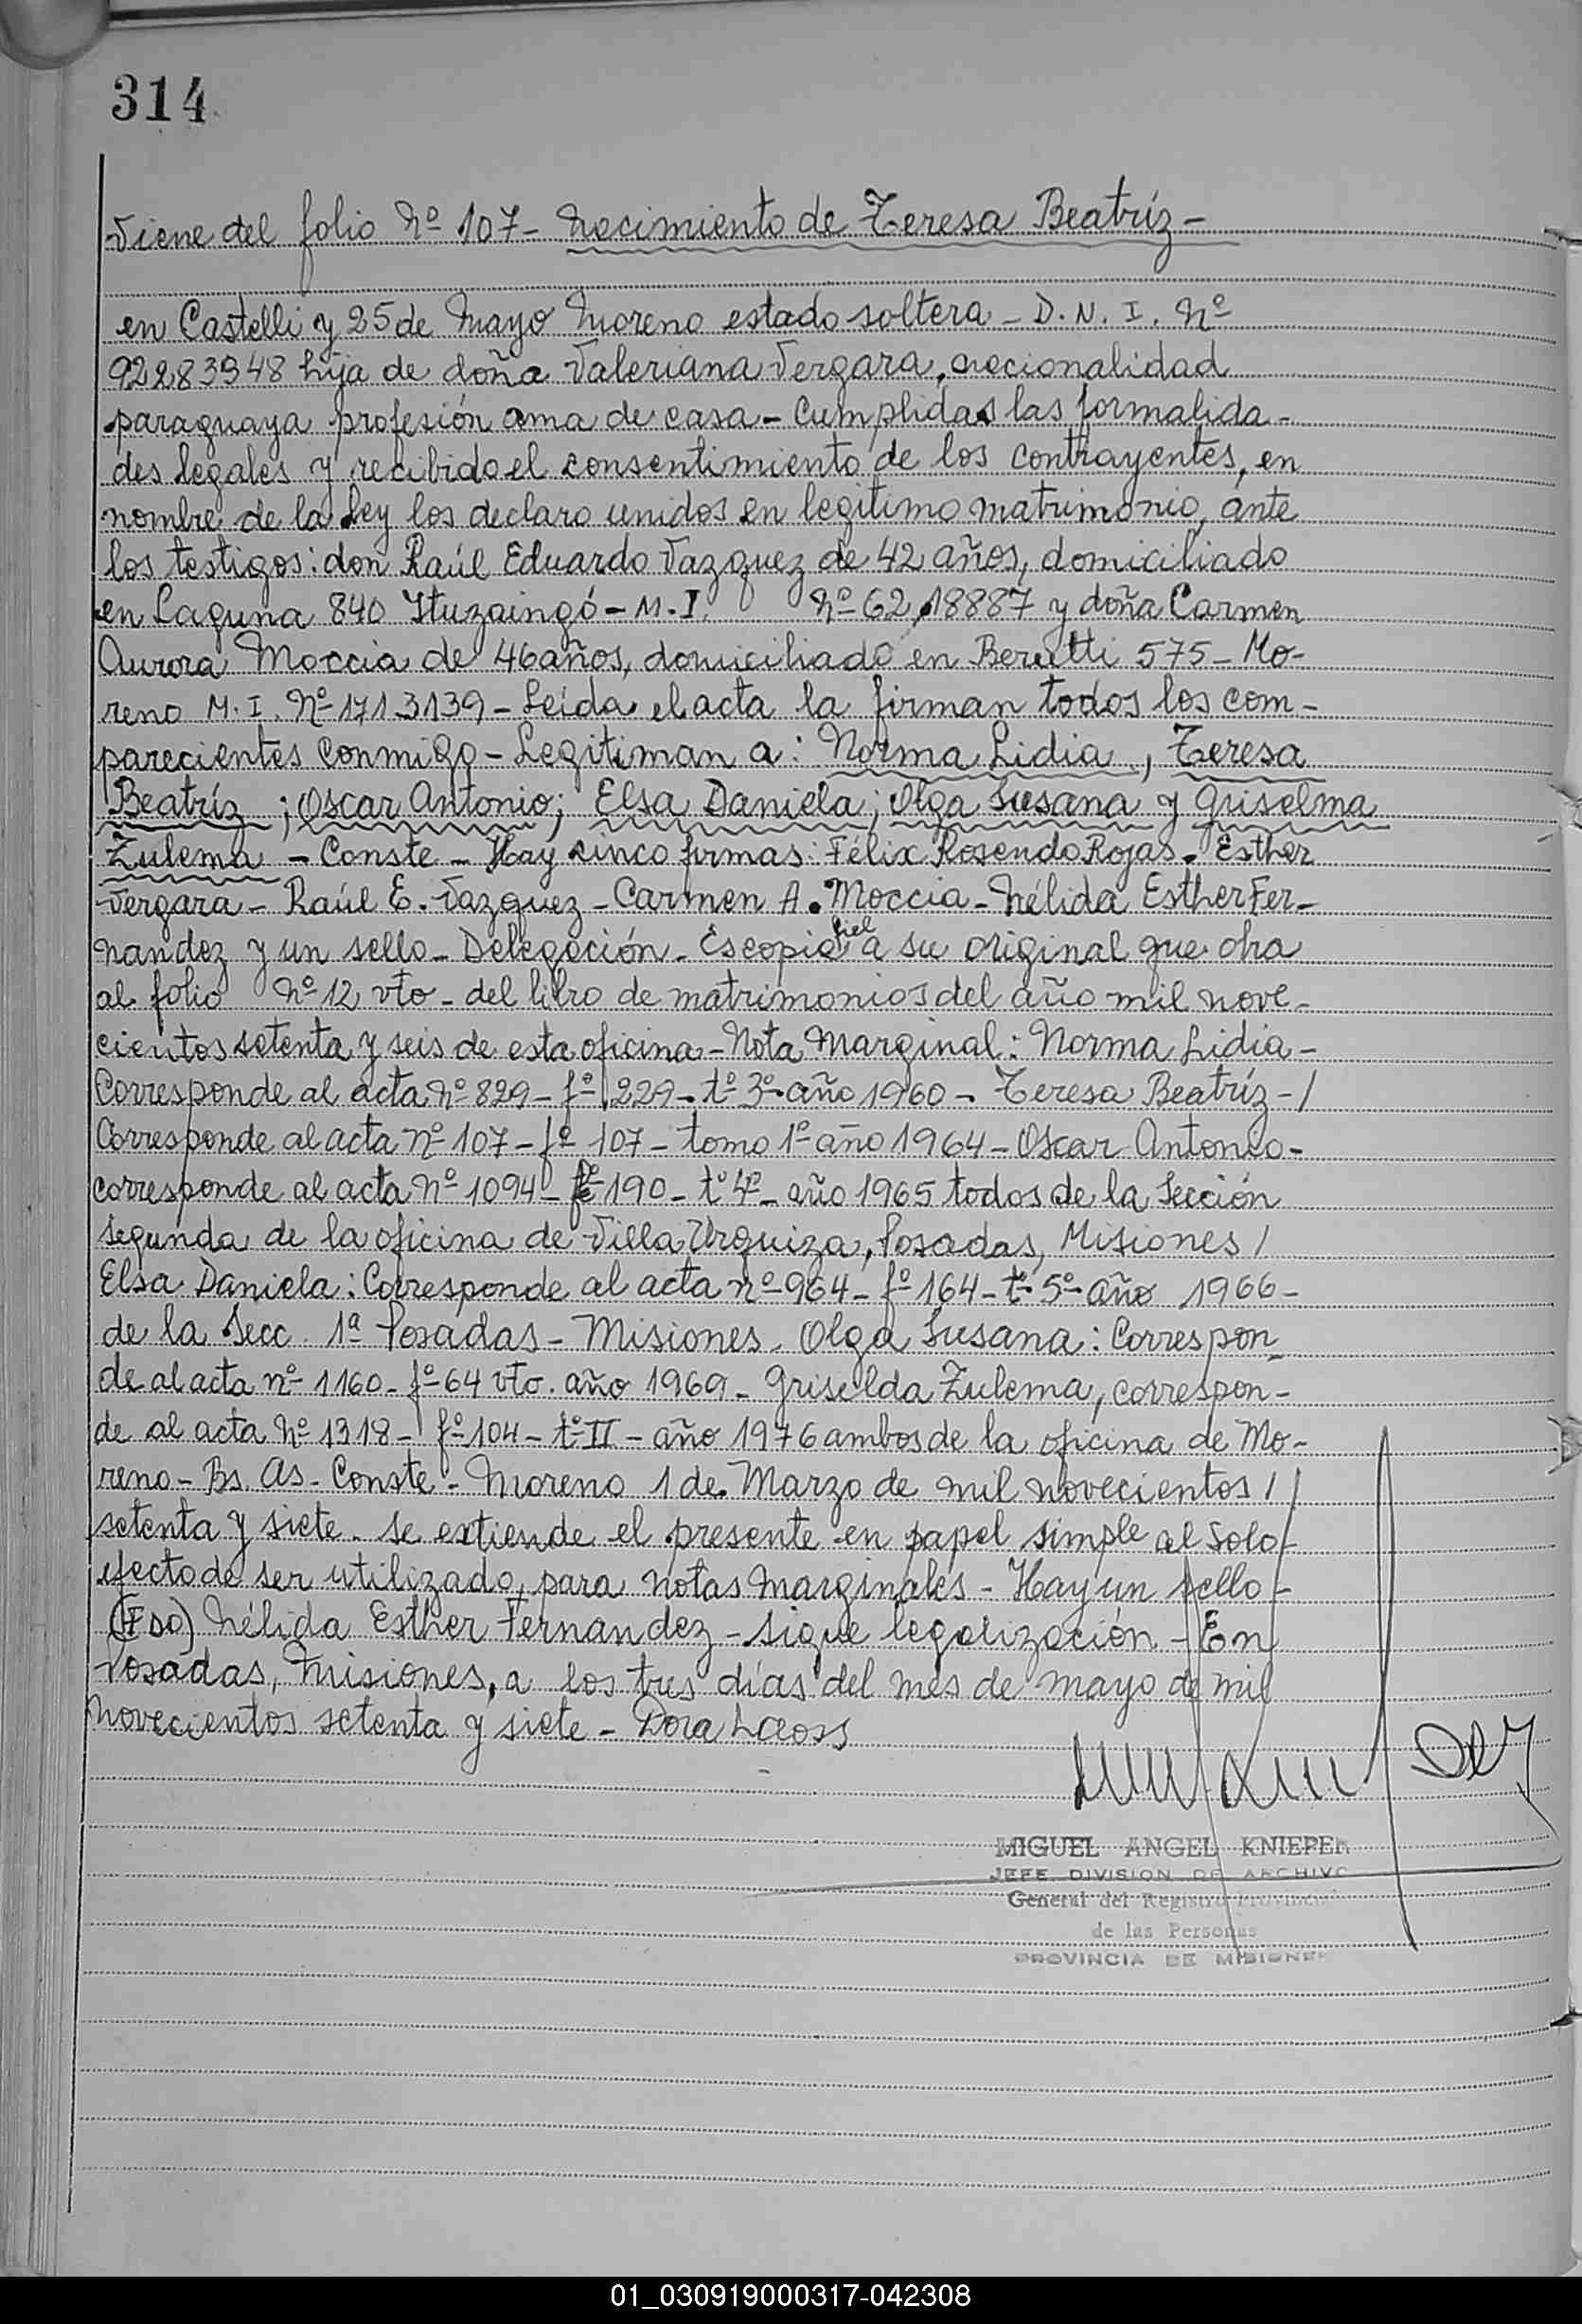 314
Viene del folio Nº 107- Nacimiento de Teresa Beatríz-
en Castelli y 25 de Mayo Moreno estado soltera - D. N. I. Nº
92283948 hija de doña Valeriana Vergara, nacionalidad
paraguaya profesión ama de casa - Cumplidas las formalida-
des legales y recibido el consentimiento de los contrayentes, en
nombre de la Ley los declaro unidos en legitimo matrimonio, ante
los testigos: don Raúl Eduardo Vazquez de 42 años, domiciliado
en Laguna 840 Ituzaingó - M. I. Nº 62,18887 y doña Carmen
Aurora Moccia de 46 años, domiciliado en Berutti 575 - Mo-
reno M. I. Nº 1713139 - Leída el acta la firman todos los com-
parecientes conmigo - Legitiman a: Norma Lidia, Teresa
Beatríz ; Oscar Antonio; Elsa Daniela; Olga Susana y Griselma
Zulema - Conste - Hay cinco firmas: Félix Rosendo Rojas. Esther
Vergara - Raúl E. Vazquez - Carmen A. Moccia - Nélida Esther Fer-
nandez y un sello - Delegación - Es copia fiel a su original que obra
al folio Nº 12 vto - del libro de matrimonios del año mil nove-
cientos setenta y seis de esta oficina - Nota Marginal: Norma Lidia -
Corresponde al acta Nº 829 - fº 229 - tº 3º - año 1960 - Teresa Beatríz - /
Corresponde al acta Nº 107 - fº 107 - tomo 1º año 1964 - Oscar Antonio -
corresponde al acta Nº 1094 - fº 190 - tº 4º - año 1965 todos de la Sección
segunda de la oficina de Villa Urquiza, Posadas, Misiones /
Elsa Daniela: Corresponde al acta nº 964 - fº 164 - tº 5º - año 1966 -
de la Secc. 1ª Posadas - Misiones - Olga Susana: Correspon-
de al acta nº 1160 - fº 64 vto. año 1969 - Griselda Zulema, correspon-
de al acta Nº 1318 - fº 104 - tº II - año 1976 ambos de la oficina de Mo-
reno - Bs. As - Conste - Moreno 1 de Marzo de mil novecientos /
setenta y siete - se extiende el presente en papel simple al solo
efecto de ser utilizado para notas marginales - Hay un sello -
(FDO) Nélida Esther Fernandez - Sigue legalización - En
Posadas, Misiones, a los tres días del mes de mayo de mil
novecientos setenta y siete - Dora
MIGUEL ANGEL KNIEPER
JEFE DIVISION DE ARCHIVO
General del Registro Provincial
de las Personas
PROVINCIA DE MISIONES
01_030919000317-042308